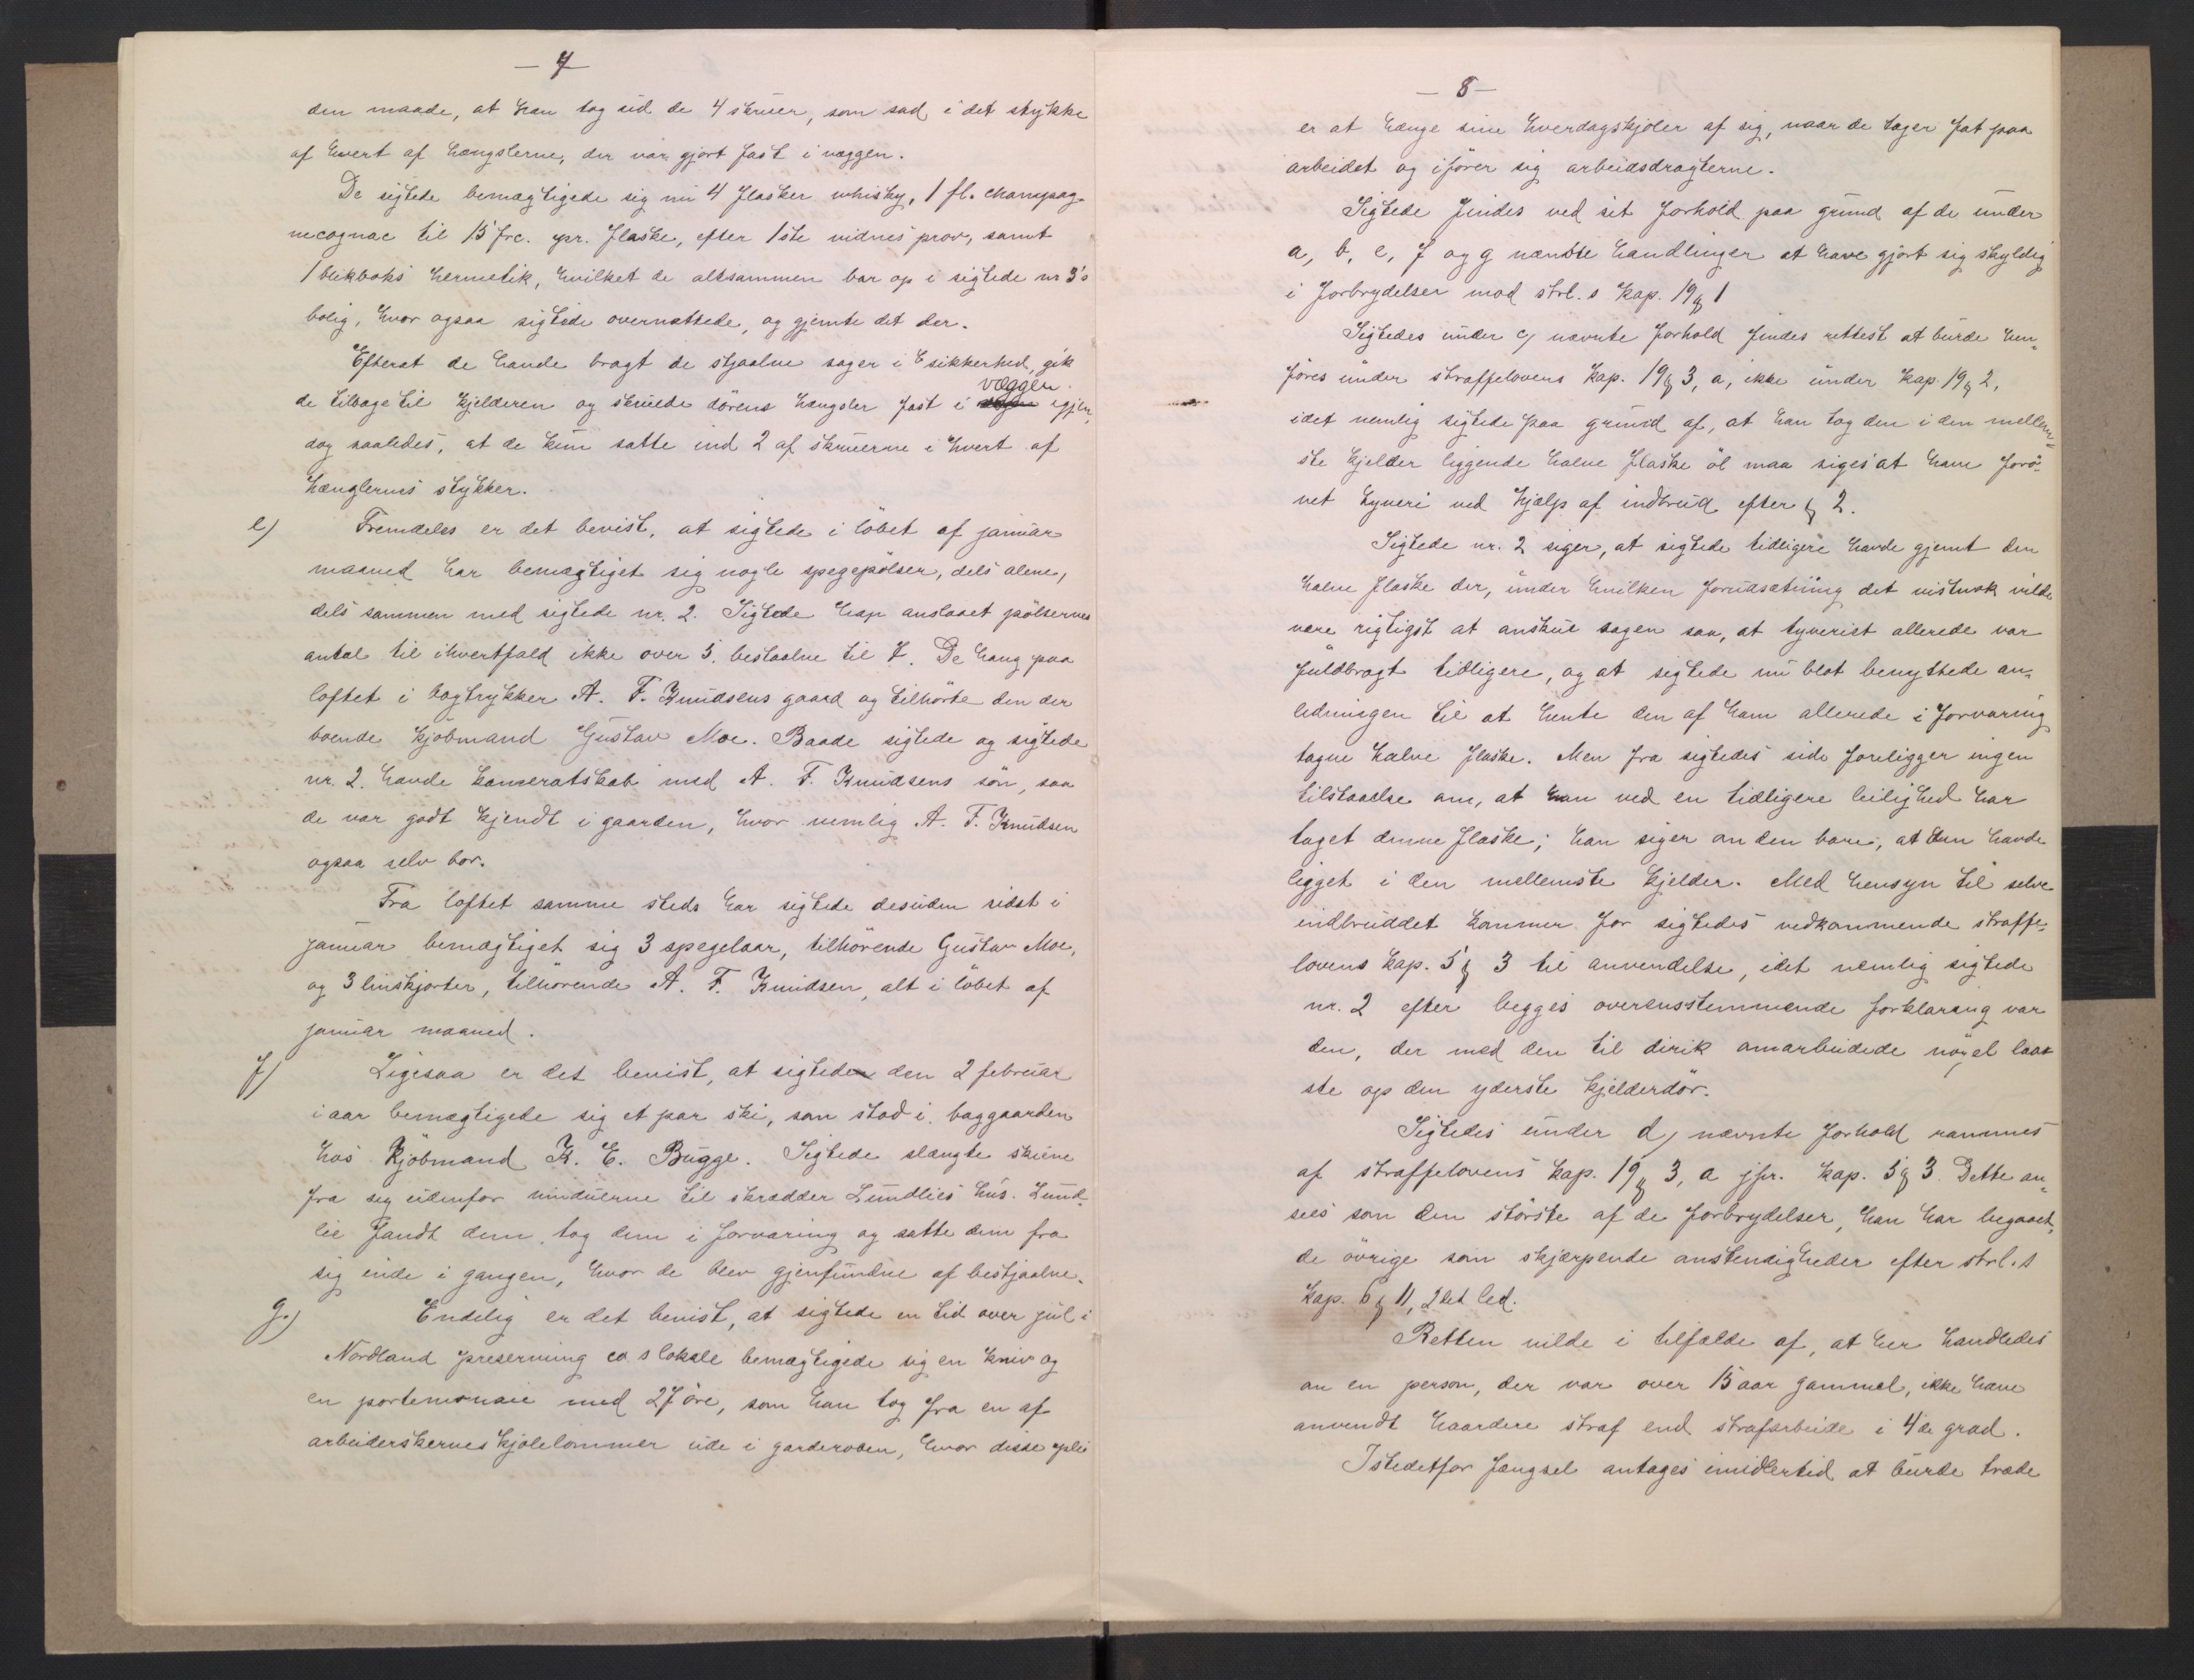 — 7
den maade, at han tog ud de 4 skruer, som sad i det stykke
af hvert af hængslerne, der var gjort fast i væggen.
De sigtede bemægtigede sig nu 4 flasker whisky, 1 fl. champag-
necognac til 15 frc. pr. flaske, efter 1ste vidnes prov, samt
1 blikboks hermetik, hvilket de altsammen bar op i sigtede nr 3's
bolig, hvor ogsaa sigtede overnattede, og gjemte det der.
Efterat de havde bragt de stjaalne sager i sikkerhed, gik
væggen
de tilbage til kjelderen og skruede dörens hængsler fast i igjen,
dog saaledes, at de kun satte ind 2 af skruerne i hvert af
hænglernes stykker.
e) Fremdeles er det bevist, at sigtede i löbet af januar
maaned har bemægtiget sig nogle spegepölser, dels alene,
dels sammen med sigtede nr. 2. Sigtede har anslaaet pölsernes
antal til ihvertfald ikke over 5, bestaalne til 7. De hang paa
loftet i bogtrykker A. F. Knudsens gaard og tilhörte den der
boende kjöbmand Gustav Moe. Baade sigtede og sigtede
nr. 2. havde kameratskab med A. F. Knudsens sön, saa
de var godt kjendt i gaarden, hvor nemlig A. F. Knudsen
ogsaa selv bor.
Fra loftet samme steds har sigtede desuden sidst i
januar bemægtiget sig 3 spegelaar, tilhörende Gustav Moe,
og 3 linskjorter, tilhörende A. F. Knudsen, alt i löbet af
januar maaned.
f) Ligesaa er det bevist, at sigtede den 2 februar
i aar bemægtigede sig et par ski, som stod i baggaarden
hos Kjöbmand K. E. Bugge. Sigtede slængte skiene
fra sig udenfor vinduerne til skrædder Lundlies hus. Lund-
lie fandt dem, tog dem i forvaring og satte dem fra
sig inde i gangen, hvor de blev gjenfundne af bestjaalne.
g.) Endelig er det bevist, at sigtede en tid over jul i
Nordland preserving co s lokale bemægtigede sig en kniv og
en portemonaie med 27 öre, som han tog fra en af
arbeiderskernes kjolelommer ude i garderoben, hvor disse plei
— 8 —
er at hænge sine hverdagskjoler af sig, naar de tager fat paa
arbeidet og iförer sig arbeidsdragterne.
Sigtede findes ved sit forhold paa grund af de under
a, b, e, f og g nævnte handlinger at have gjort sig skyldig
i forbrydelser mod strl.s kap. 19 § 1
Sigtedes under c) nævnte forhold findes rettest at burde hen-
föres under straffelovens kap. 19 § 3, a, ikke under kap. 19 § 2,
idet nemlig sigtede paa grund af, at han tog den i den mellem-
ste kjelder liggende halve flaske öl maa siges at have forö-
vet tyveri ved hjælp af indbrud efter § 2.
Sigtede nr. 2 siger, at sigtede tidligere havde gjemt den
halve flaske der, under hvilken forudsætning det vistnok vilde
være rigtigst at anskue sagen saa, at tyveriet allerede var
fuldbragt tidligere, og at sigtede nu blot benyttede an-
ledningen til at hente den af ham allerede i forvaring
tagne halve flaske. Men fra sigtedes side foreligger ingen
tilstaaelse om, at han ved en tidligere leilighed har
taget denne flaske; han siger om den bare, at den havde
ligget i den mellemste kjelder. Med hensyn til selve
indbruddet kommer for sigtedes vedkommende straffe-
lovens kap. 5 § 3 til anvendelse, idet nemlig sigtede
nr. 2 efter begges overensstemmende forklaring var
den, der med den til dirik omarbeidede nögel laa-
ste op den yderste kjelderdör.
Sigtedes under d) nævnte forhold rammes
af straffelovens kap. 19 § 3, a jfr. kap. 5 § 3. Dette an-
sees som den störste af de forbrydelser, han har begaaet,
de övrige som skjærpende omstendigheder efter strl.s
kap. 6 § 11, 2det led.
Retten vilde i tilfælde af, at her handledes
om en person, der var over 15 aar gammel, ikke have
anvendt haardere straf end strafarbeide i 4de grad.
Istedetfor fængsel antages imidlertid at burde træde